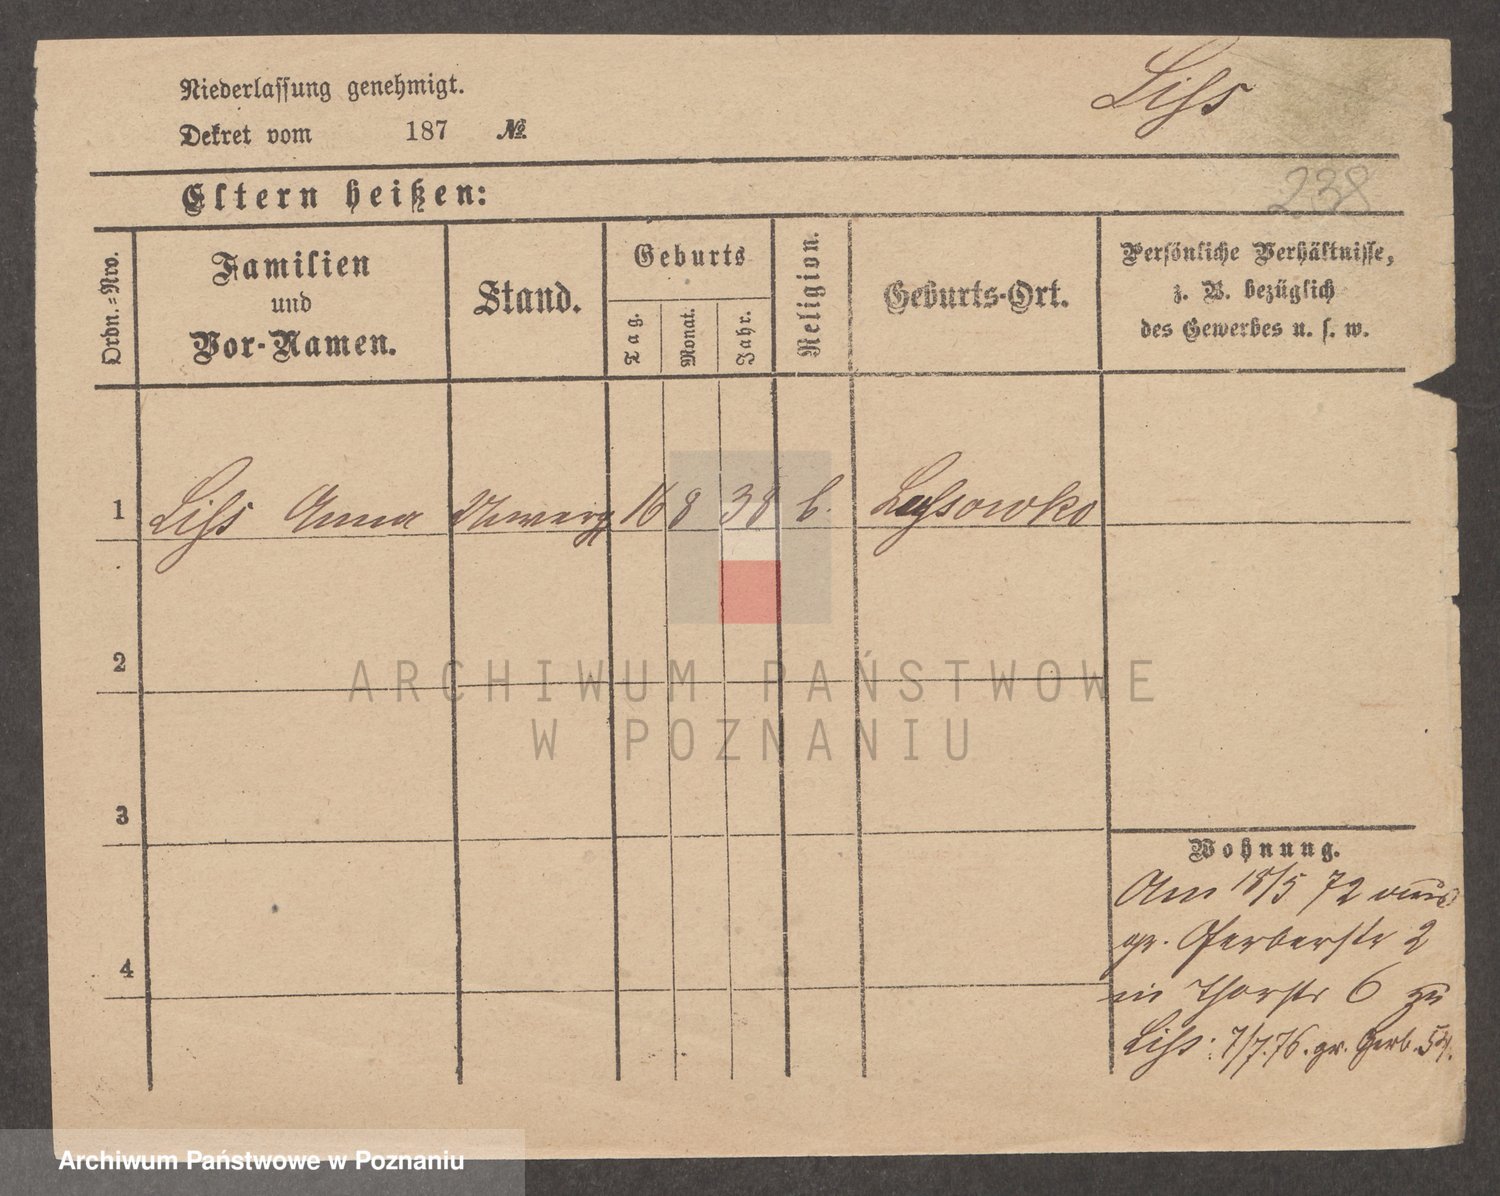 Niederlassung genehmigt.
Liss
Dekret vom 187 №
238
Eltern heißen:
Ordn.=Nro.
Familien
und
Vor-Namen.
Stand.
Geburts
Tag.
Monat.
Jahr.
Religion.
Geburts-Ort.
Persönliche Verhältnisse,
z. B. bezüglich
des Gewerbes u. s. w.
1 Liss Anna Unwerg 16 8 38 k.
2
3
4
Wohnung.
Am 18/5 72 aus
gr. Gerberstr 2
in Thorstr 6 zu
Liss: 7/7.76. gr. Gerb. 54.
ARCHIWUM PAŃSTWOWE
W POZNANIU
Archiwum Państwowe w Poznaniu